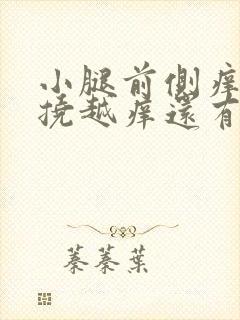 小腿前側痒
撓越痒還有
蓁蓁葉